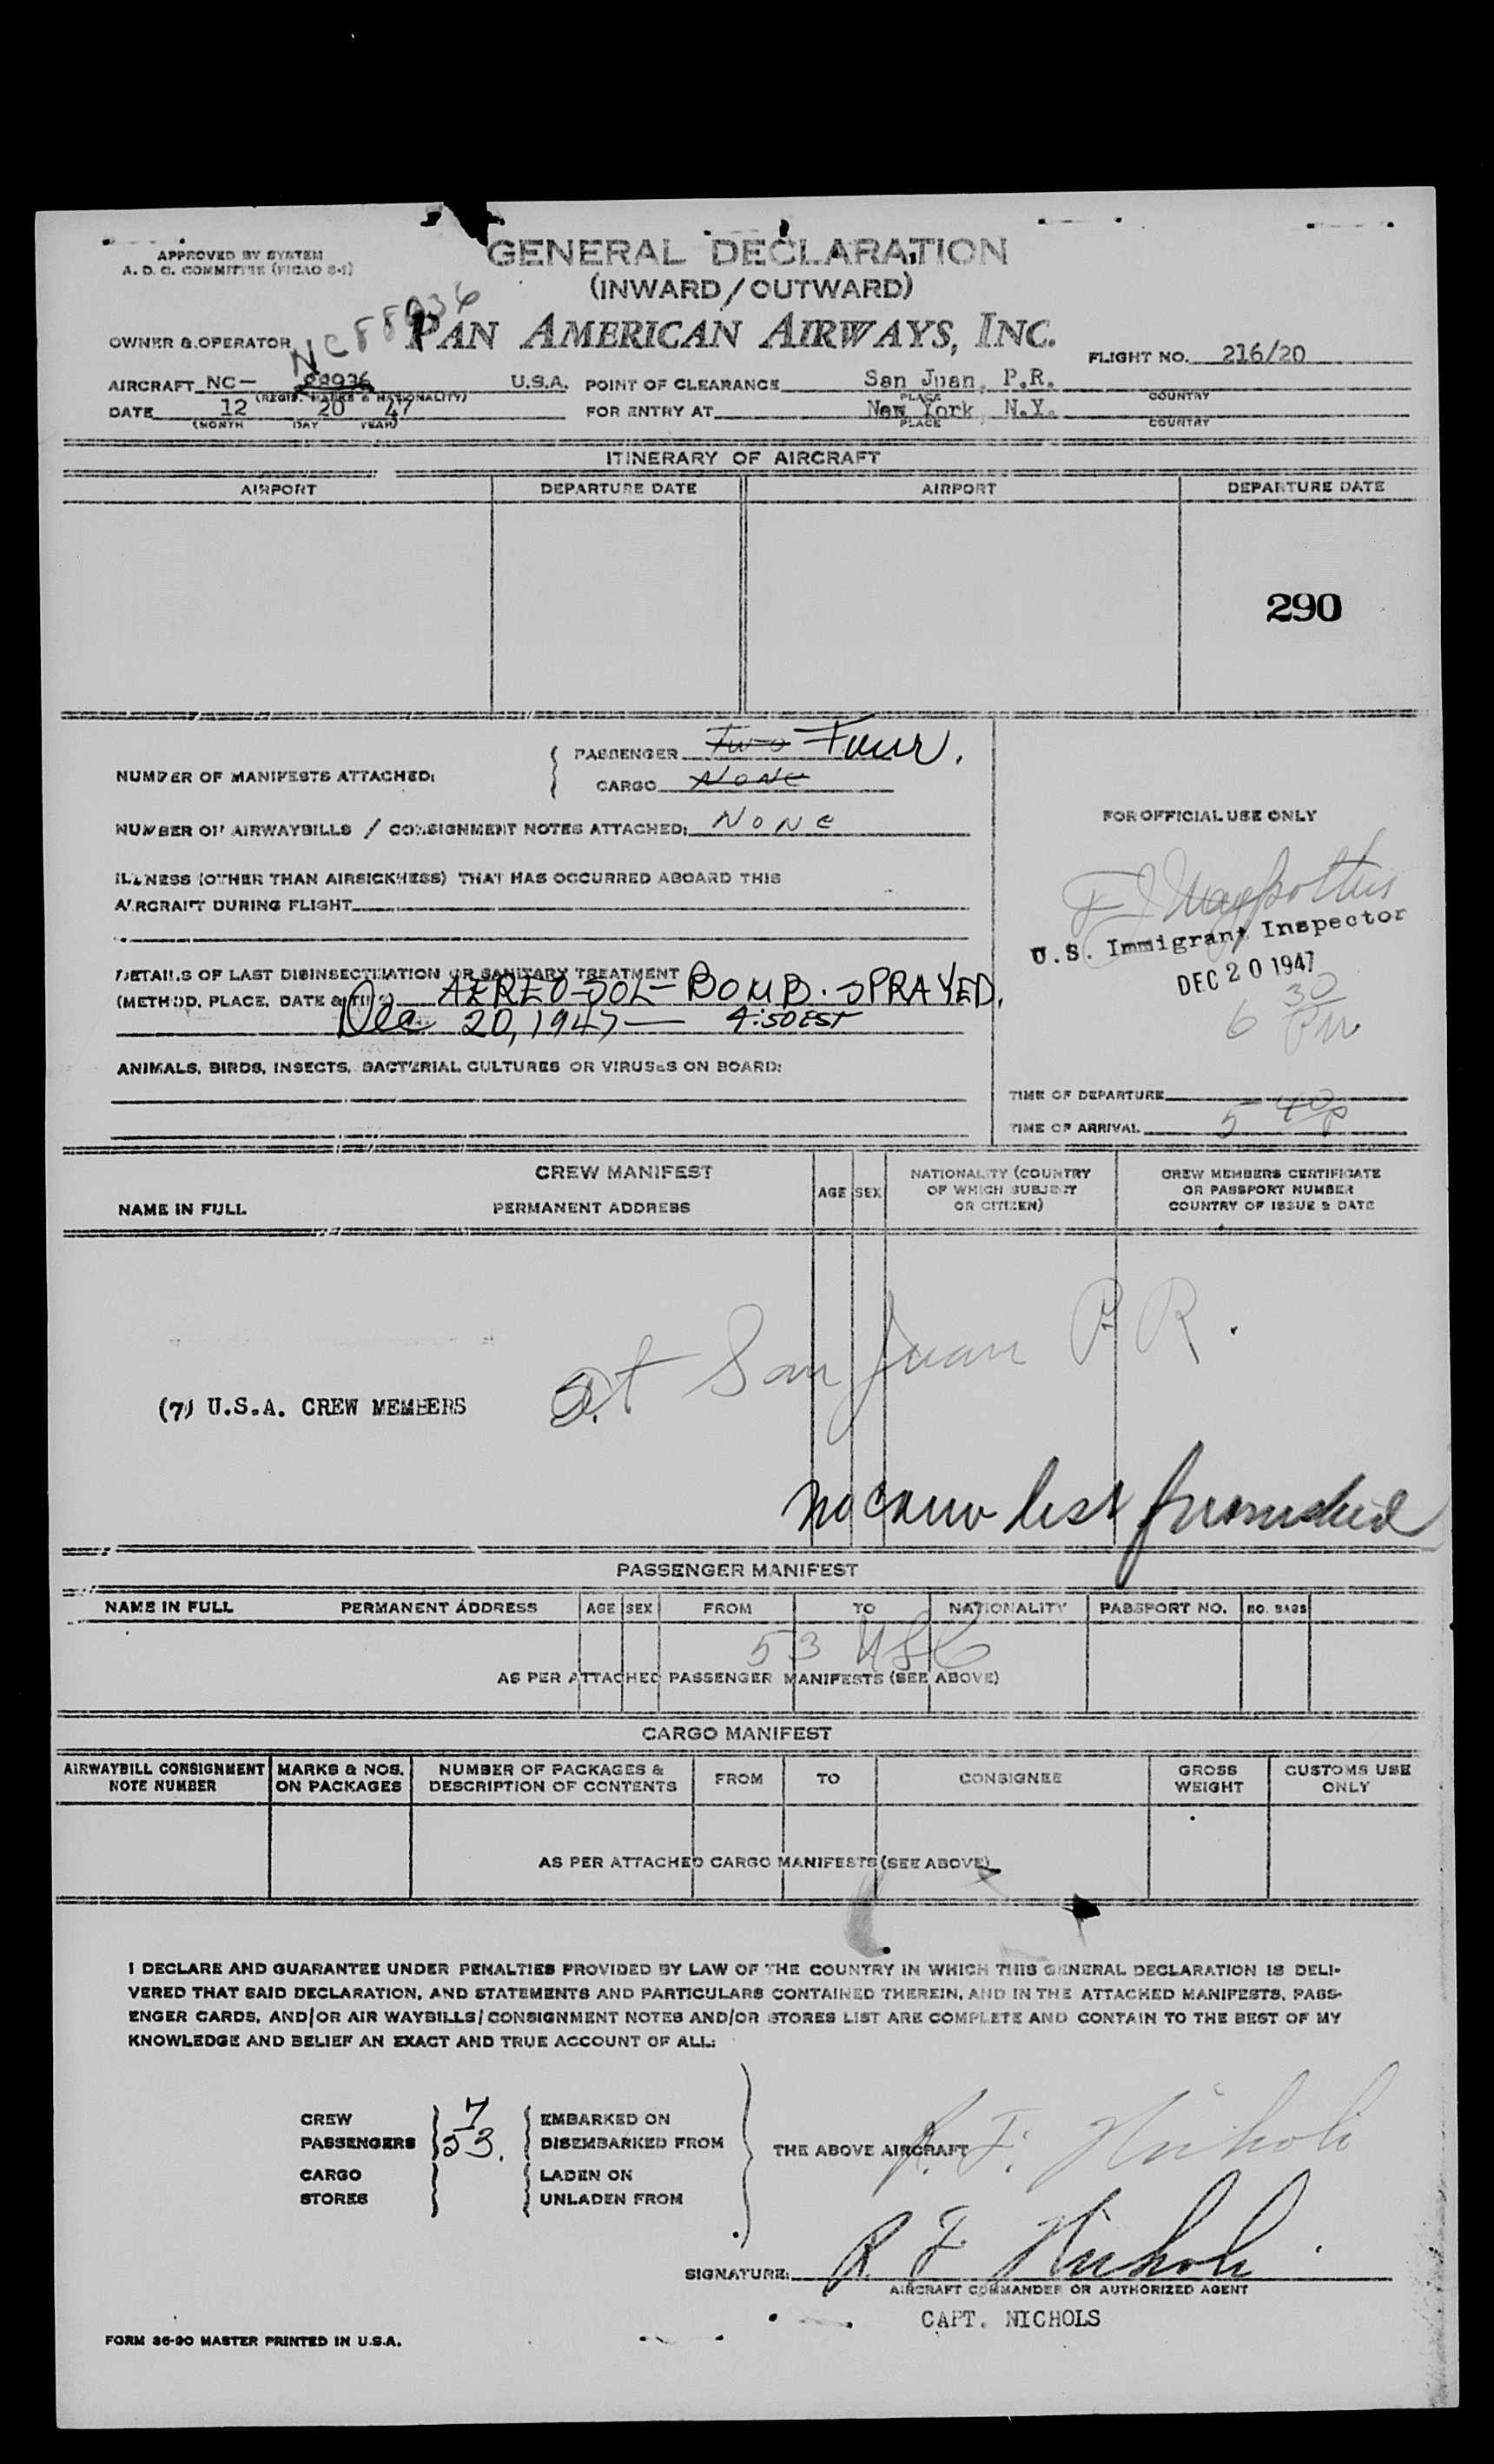 APPROVED BY SYSTEM
A. D. C. COMMITTEE (PICAO S-1)
GENERAL DECLARATION
(INWARD/OUTWARD)
NC88936
OWNER & OPERATOR PAN AMERICAN AIRWAYS, INC.
FLIGHT NO. 216/20
AIRCRAFT NC- 88936 U.S.A. POINT OF CLEARANCE San Juan, P.R.
(REGIS. MARKS & NATIONALITY) PLACE COUNTRY
DATE 12 20 47 FOR ENTRY AT New York, N.Y.
(MONTH DAY YEAR) PLACE COUNTRY
ITINERARY OF AIRCRAFT
AIRPORT DEPARTURE DATE AIRPORT DEPARTURE DATE
290
NUMBER OF MANIFESTS ATTACHED:
PASSENGER Two Four.
CARGO None
NUMBER OF AIRWAYBILLS / CONSIGNMENT NOTES ATTACHED: None
FOR OFFICIAL USE ONLY
ILLNESS (OTHER THAN AIRSICKNESS) THAT HAS OCCURRED ABOARD THIS
AIRCRAFT DURING FLIGHT
U.S. Immigrant Inspector
DEC 20 1947
6 30 PM
DETAILS OF LAST DISINSECTIZATION OR SANITARY TREATMENT
(METHOD, PLACE, DATE & TIME) AEREO-SOL-BOMB. SPRAYED.
Dec 20, 1947 — 4:50 EST
ANIMALS, BIRDS, INSECTS, BACTERIAL CULTURES OR VIRUSES ON BOARD:
TIME OF DEPARTURE
TIME OF ARRIVAL 5 40 P
CREW MANIFEST
NAME IN FULL PERMANENT ADDRESS AGE SEX NATIONALITY (COUNTRY OF WHICH SUBJECT OR CITIZEN) CREW MEMBERS CERTIFICATE OR PASSPORT NUMBER COUNTRY OF ISSUE & DATE
at San Juan P.R.
(7) U.S.A. CREW MEMBERS
no crew list furnished
PASSENGER MANIFEST
NAME IN FULL PERMANENT ADDRESS AGE SEX FROM TO NATIONALITY PASSPORT NO. NO. BAGS
53 USC
AS PER ATTACHED PASSENGER MANIFESTS (SEE ABOVE)
CARGO MANIFEST
AIRWAYBILL CONSIGNMENT NOTE NUMBER MARKS & NOS. ON PACKAGES NUMBER OF PACKAGES & DESCRIPTION OF CONTENTS FROM TO CONSIGNEE GROSS WEIGHT CUSTOMS USE ONLY
AS PER ATTACHED CARGO MANIFESTS (SEE ABOVE)
I DECLARE AND GUARANTEE UNDER PENALTIES PROVIDED BY LAW OF THE COUNTRY IN WHICH THIS GENERAL DECLARATION IS DELI-
VERED THAT SAID DECLARATION, AND STATEMENTS AND PARTICULARS CONTAINED THEREIN, AND IN THE ATTACHED MANIFESTS, PASS-
ENGER CARDS, AND/OR AIR WAYBILLS/CONSIGNMENT NOTES AND/OR STORES LIST ARE COMPLETE AND CONTAIN TO THE BEST OF MY
KNOWLEDGE AND BELIEF AN EXACT AND TRUE ACCOUNT OF ALL:
CREW 7 EMBARKED ON
PASSENGERS 53. DISEMBARKED FROM
THE ABOVE AIRCRAFT R. F. Nichols
CARGO LADEN ON
STORES UNLADEN FROM
SIGNATURE: R F Nichols
AIRCRAFT COMMANDER OR AUTHORIZED AGENT
CAPT. NICHOLS
FORM 36-90 MASTER PRINTED IN U.S.A.